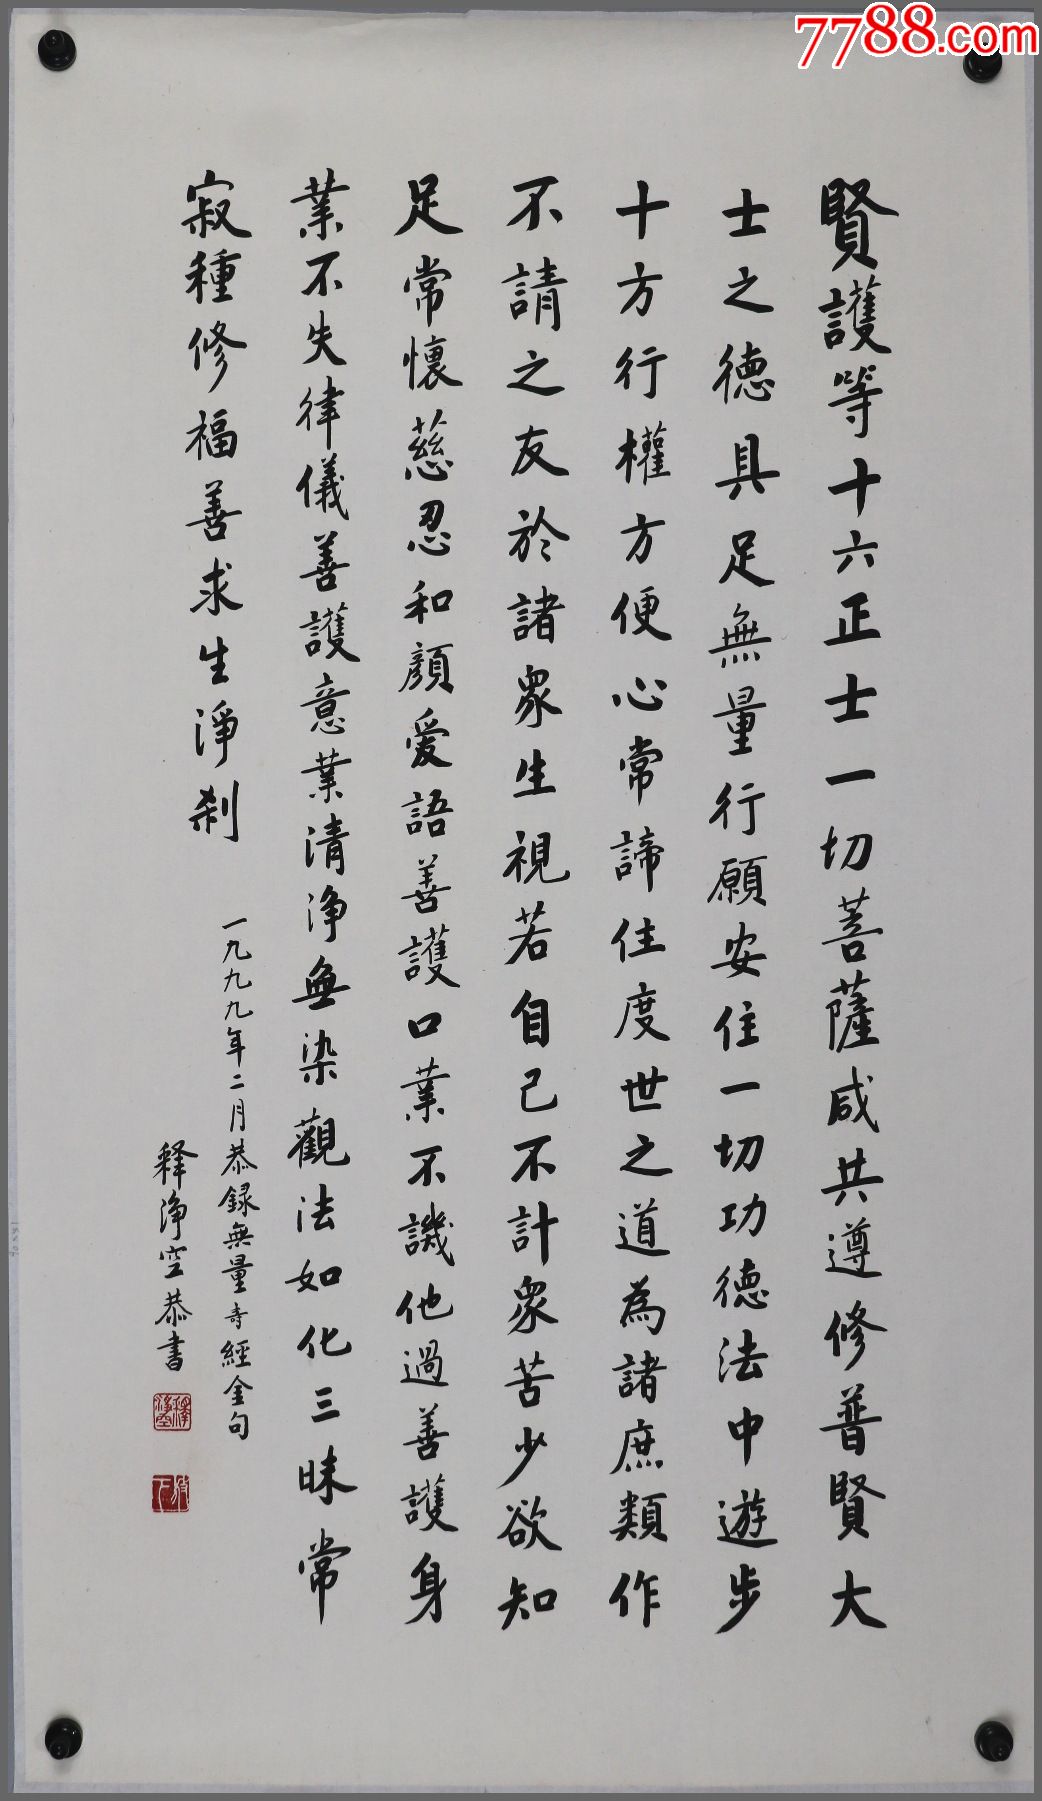 7788.com
賢護等十六正士一切菩薩咸共遵修普賢大
士之德具足無量行願安住一切功德法中遊步
十方行權方便心常諦住度世之道為諸庶類作
不請之友於諸眾生視若自己不計眾苦少欲知
足常懷慈忍和顏愛語善護口業不譏他過善護身
業不失律儀善護意業清淨無染觀法如化三昧常
寂種修福善求生淨刹
一九九九年二月恭録無量寿經金句
释淨空恭書
釋淨空